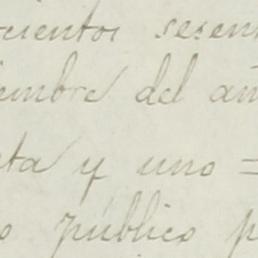 cientos sesen
iembre del añ
nta y uno =
o público p